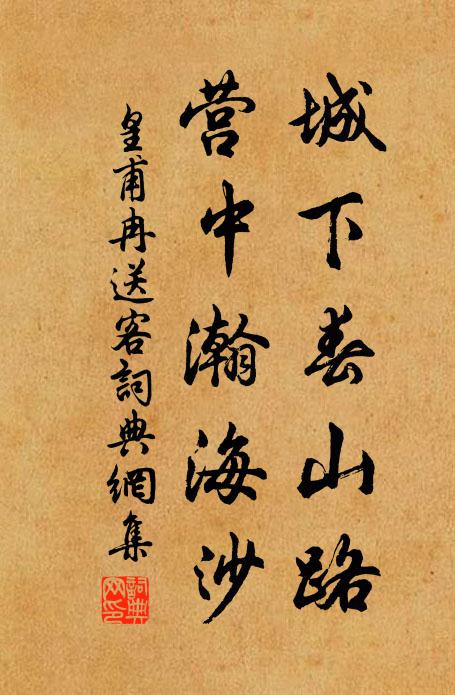 城下春山路
营中瀚海沙
皇甫冉送客詞典網集
詞典网印